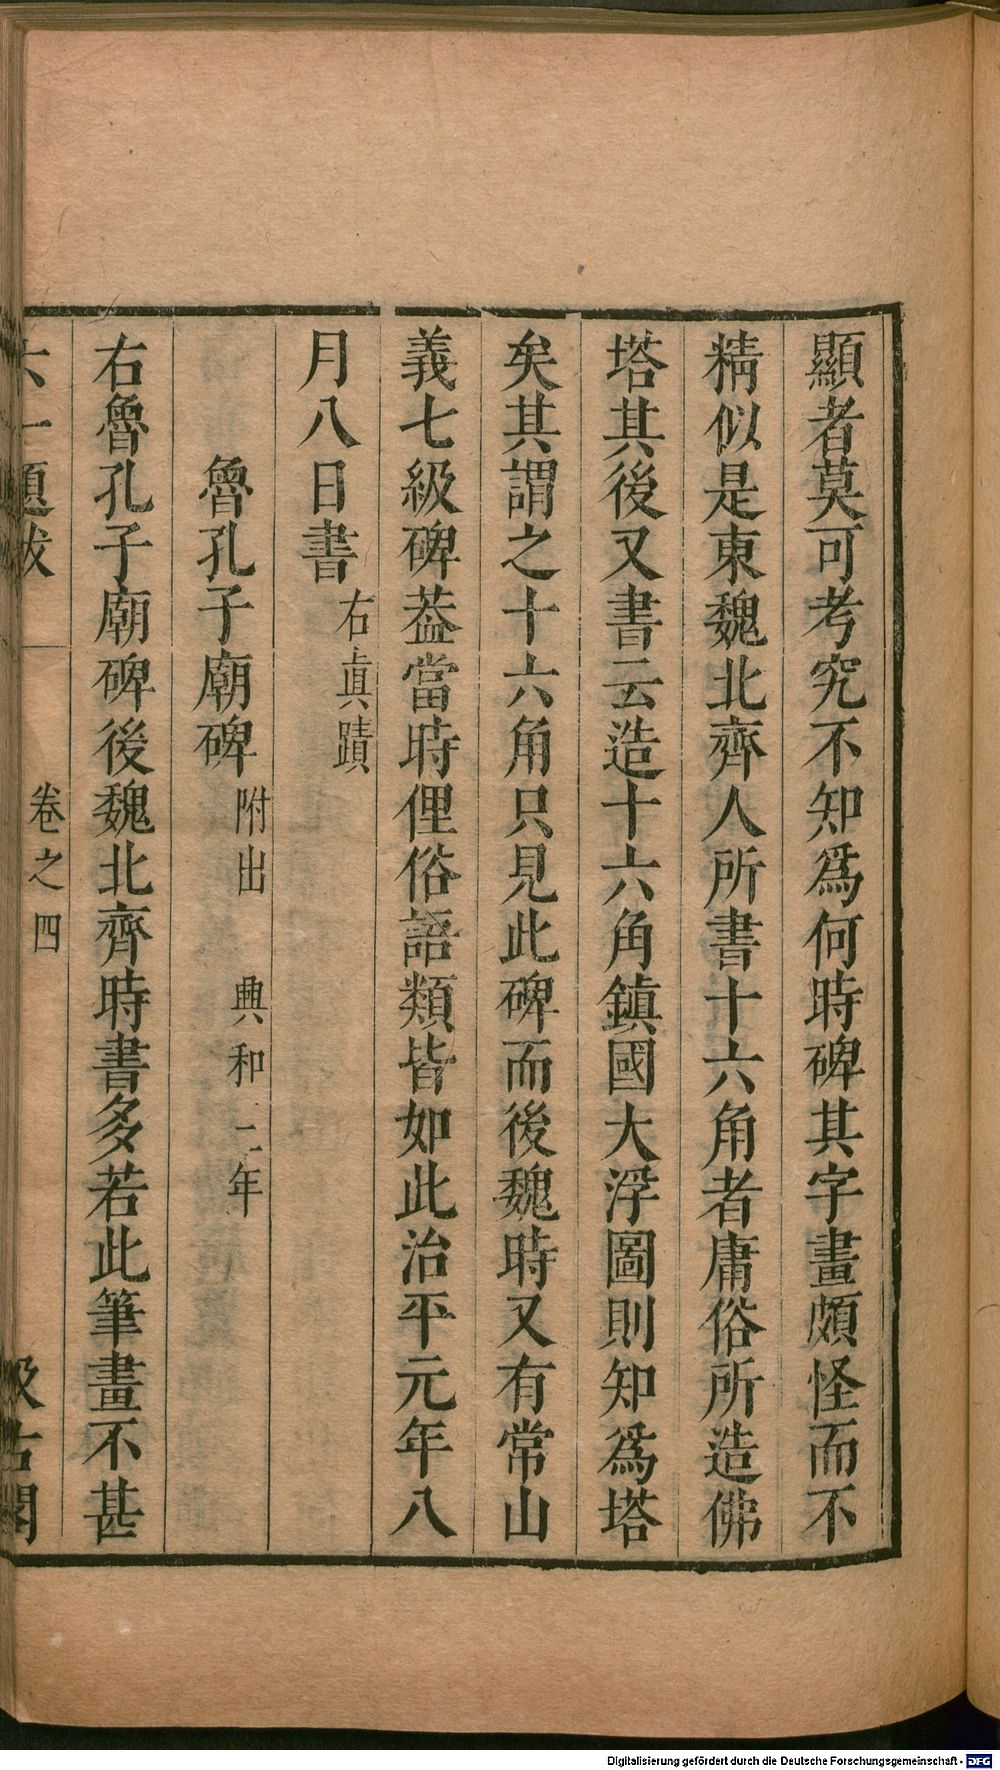 顯者莫可考究不知爲何時碑其字畫頗怪而不
精似是東魏北齊人所書十六角者庸俗所造佛
塔其後又書云造十六角鎮國大浮圖則知爲塔
矣其謂之十六角只見此碑而後魏時又有常山
義七級碑葢當時俚俗語類皆如此治平元年八
月八日書 右眞蹟
魯孔子廟碑 附出 興和二年
右魯孔子廟碑後魏北齊時書多若此筆畫不甚
六一題跋 卷之四 汲古閣
Digitalisierung gefördert durch die Deutsche Forschungsgemeinschaft - DFG